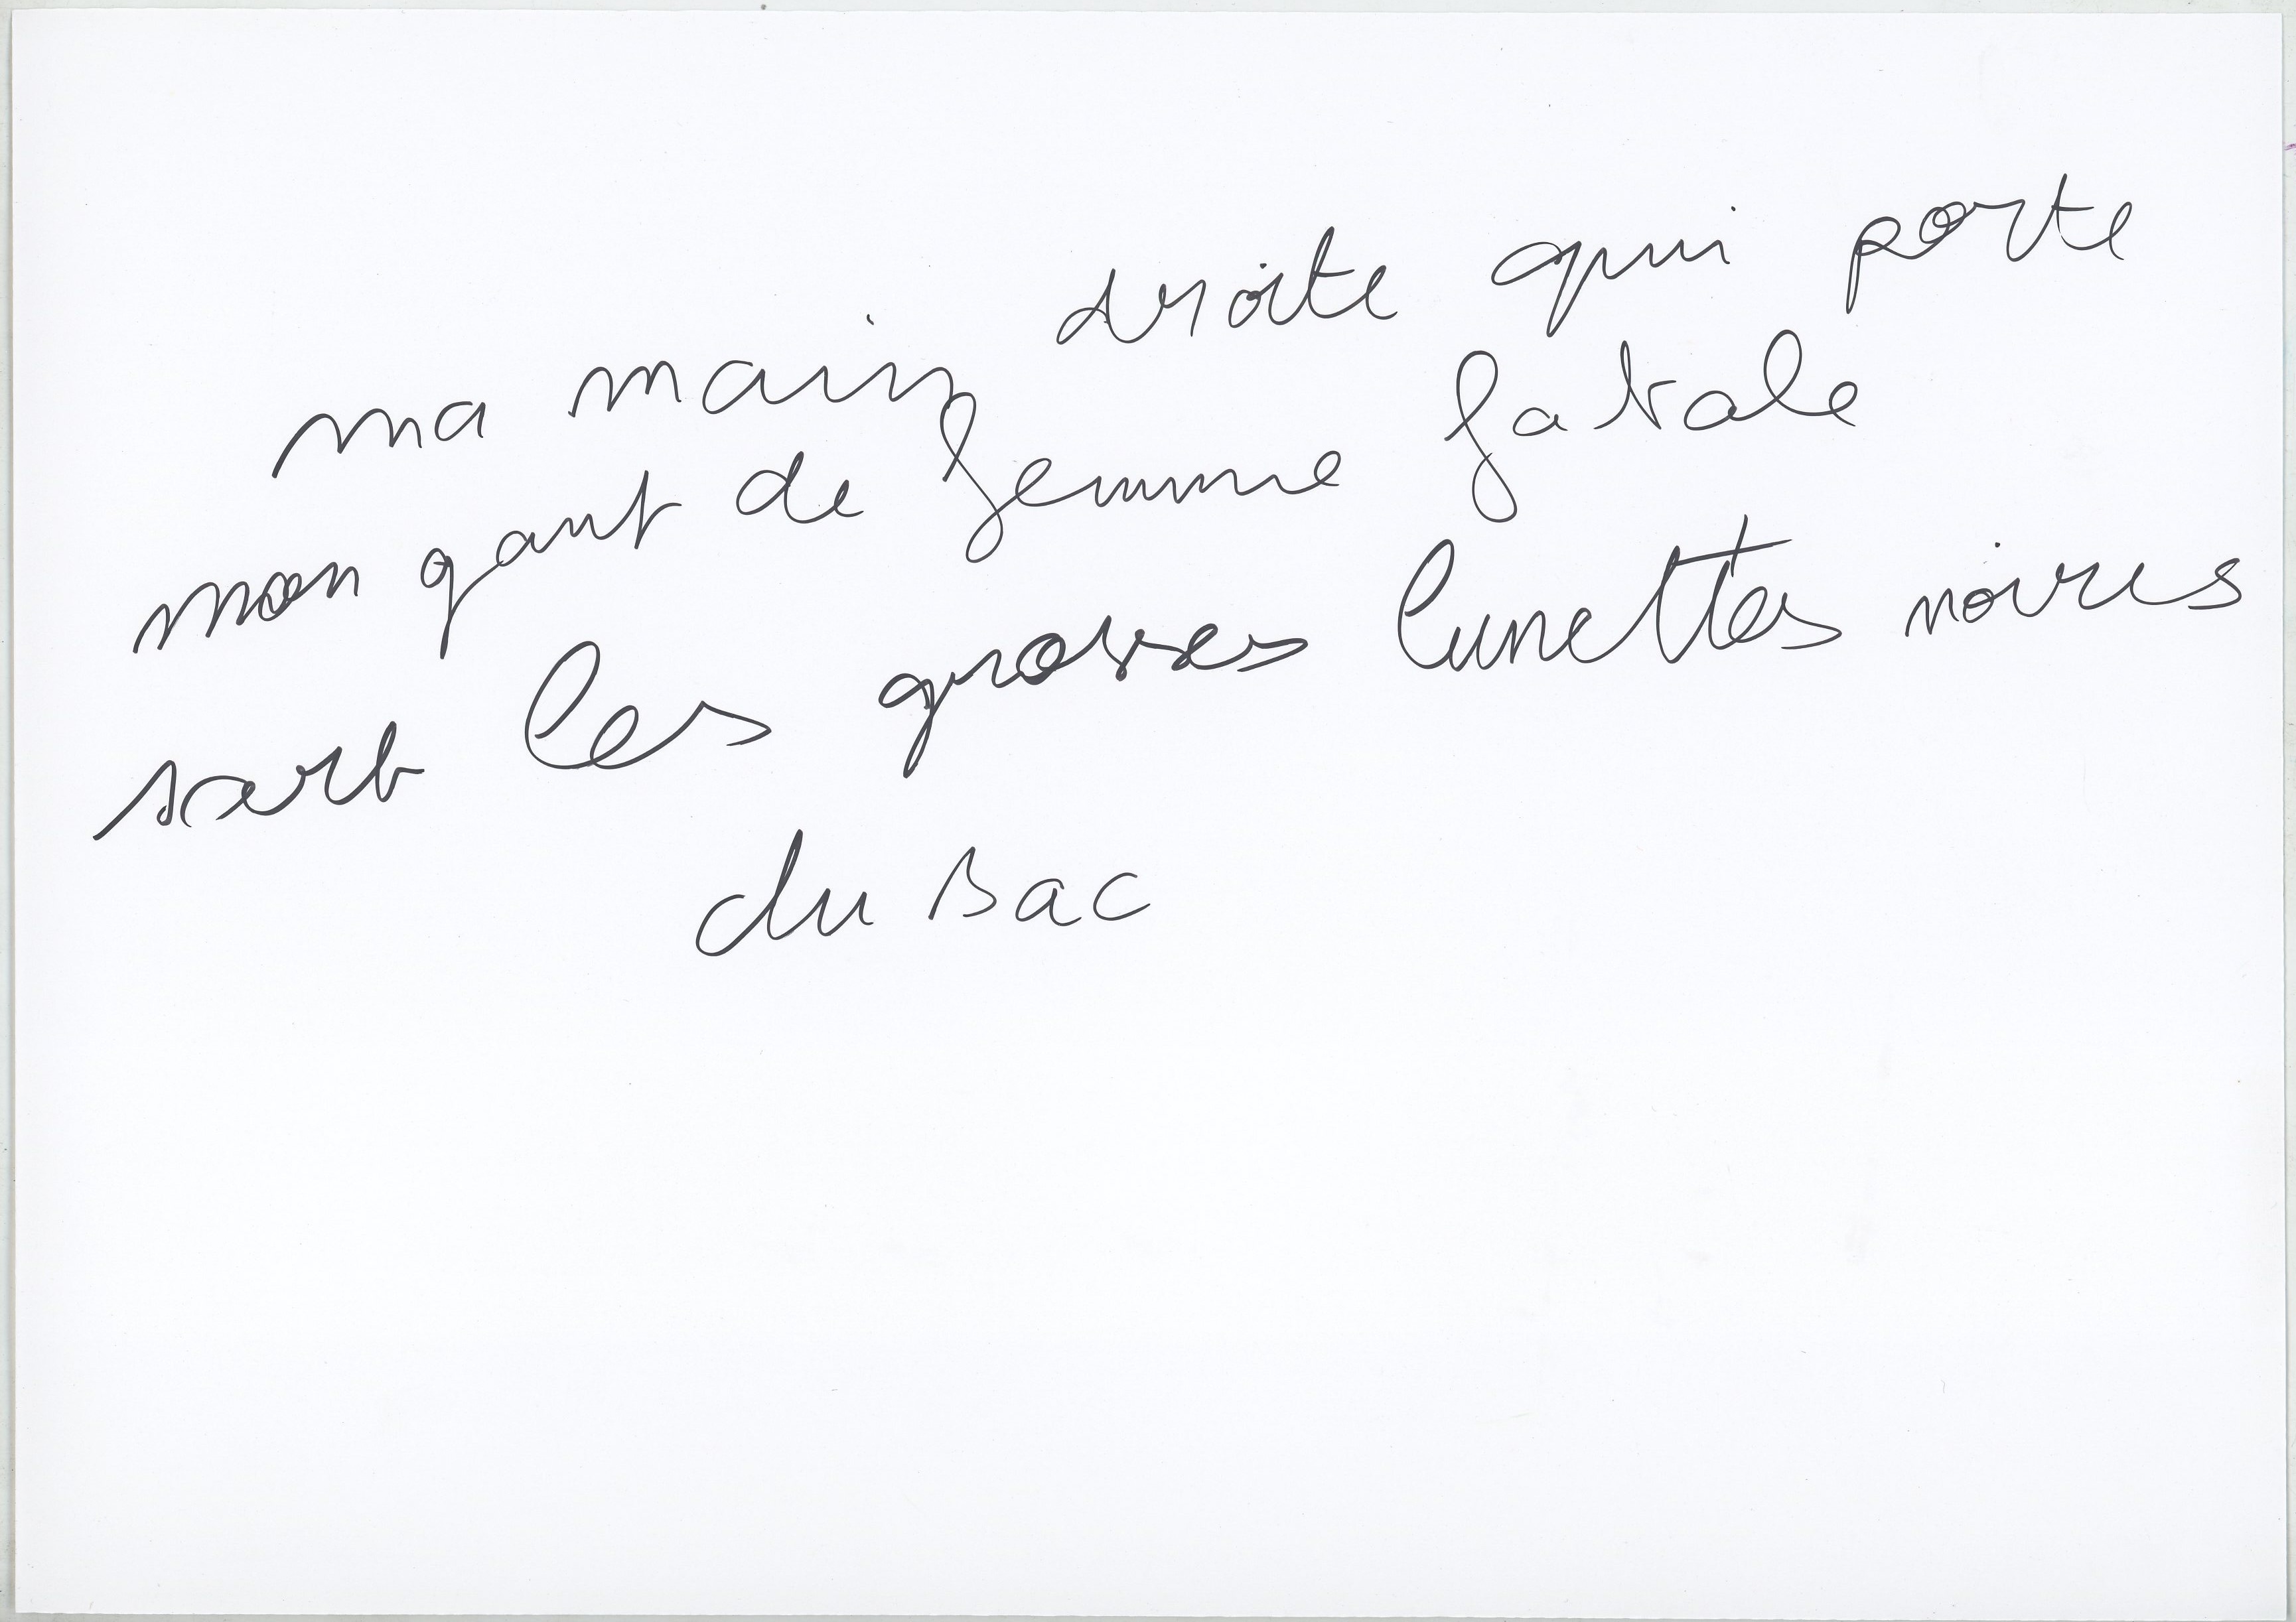 ma main droite qui porte
mon gant de femme fatale
sort les grosses lunettes noires
du Bac